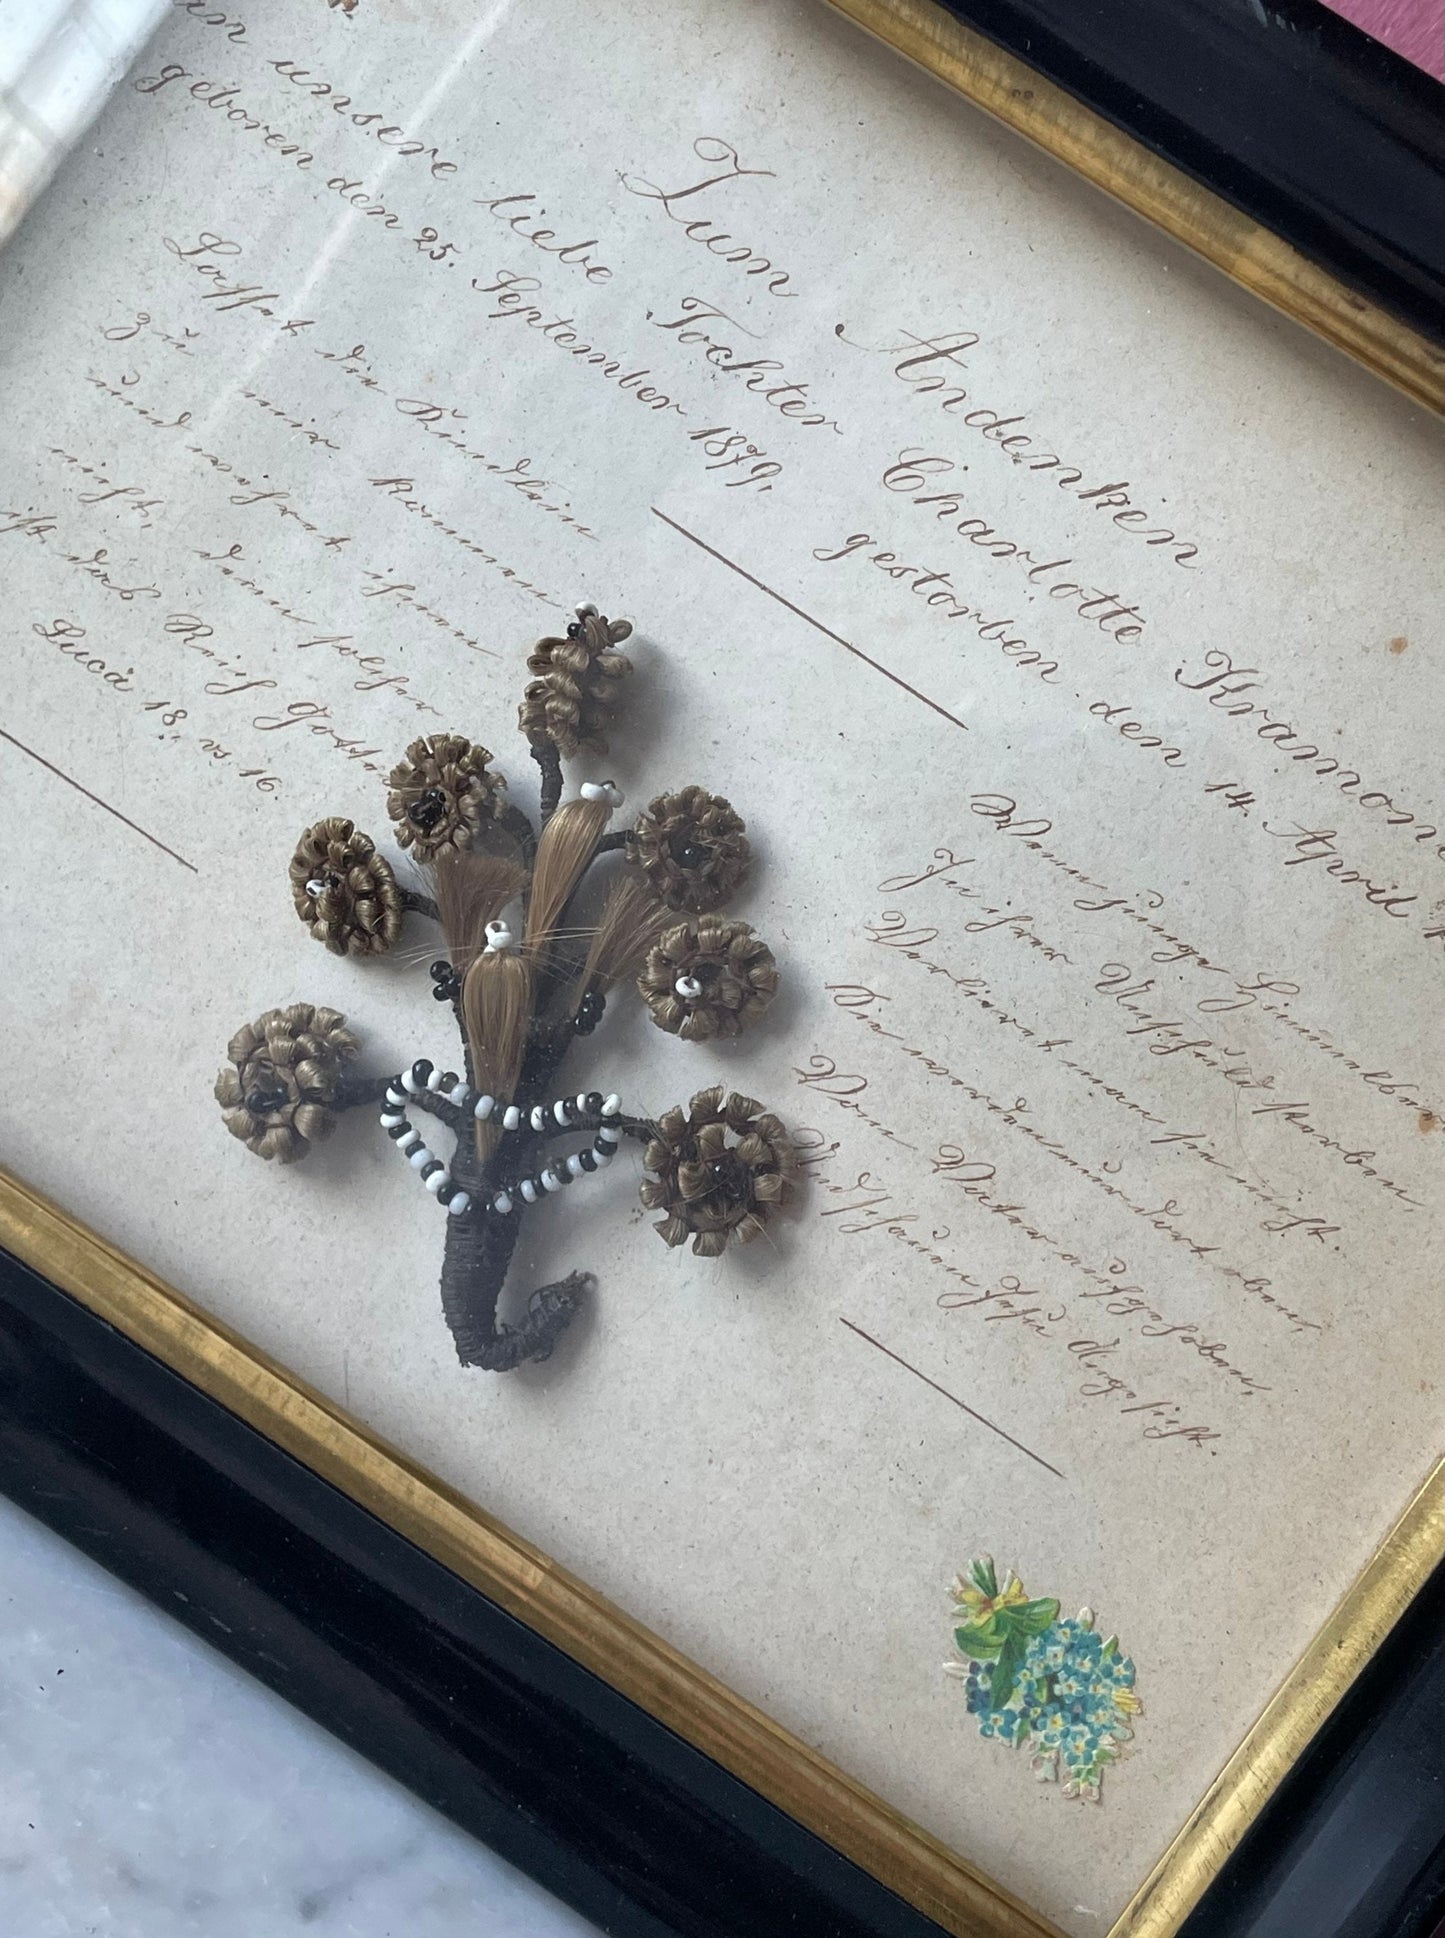 Zum Andenken
an unsere liebe Tochter Charlotte Kramon
geboren den 25. September 1879, gestorben den 14. April
Lasset die Kindlein
zu mir kommen
und wehret ihnen
nicht, denn solcher
ist das Reich Gottes
Lucä 18, vs. 16.
Wenn junge Himmelb
In ihrer Unschuld sterben,
Verliert man sie nicht.
Sie werden nur dort oben,
Vom Vater aufgehoben,
Und schauen Jesu Angesicht.